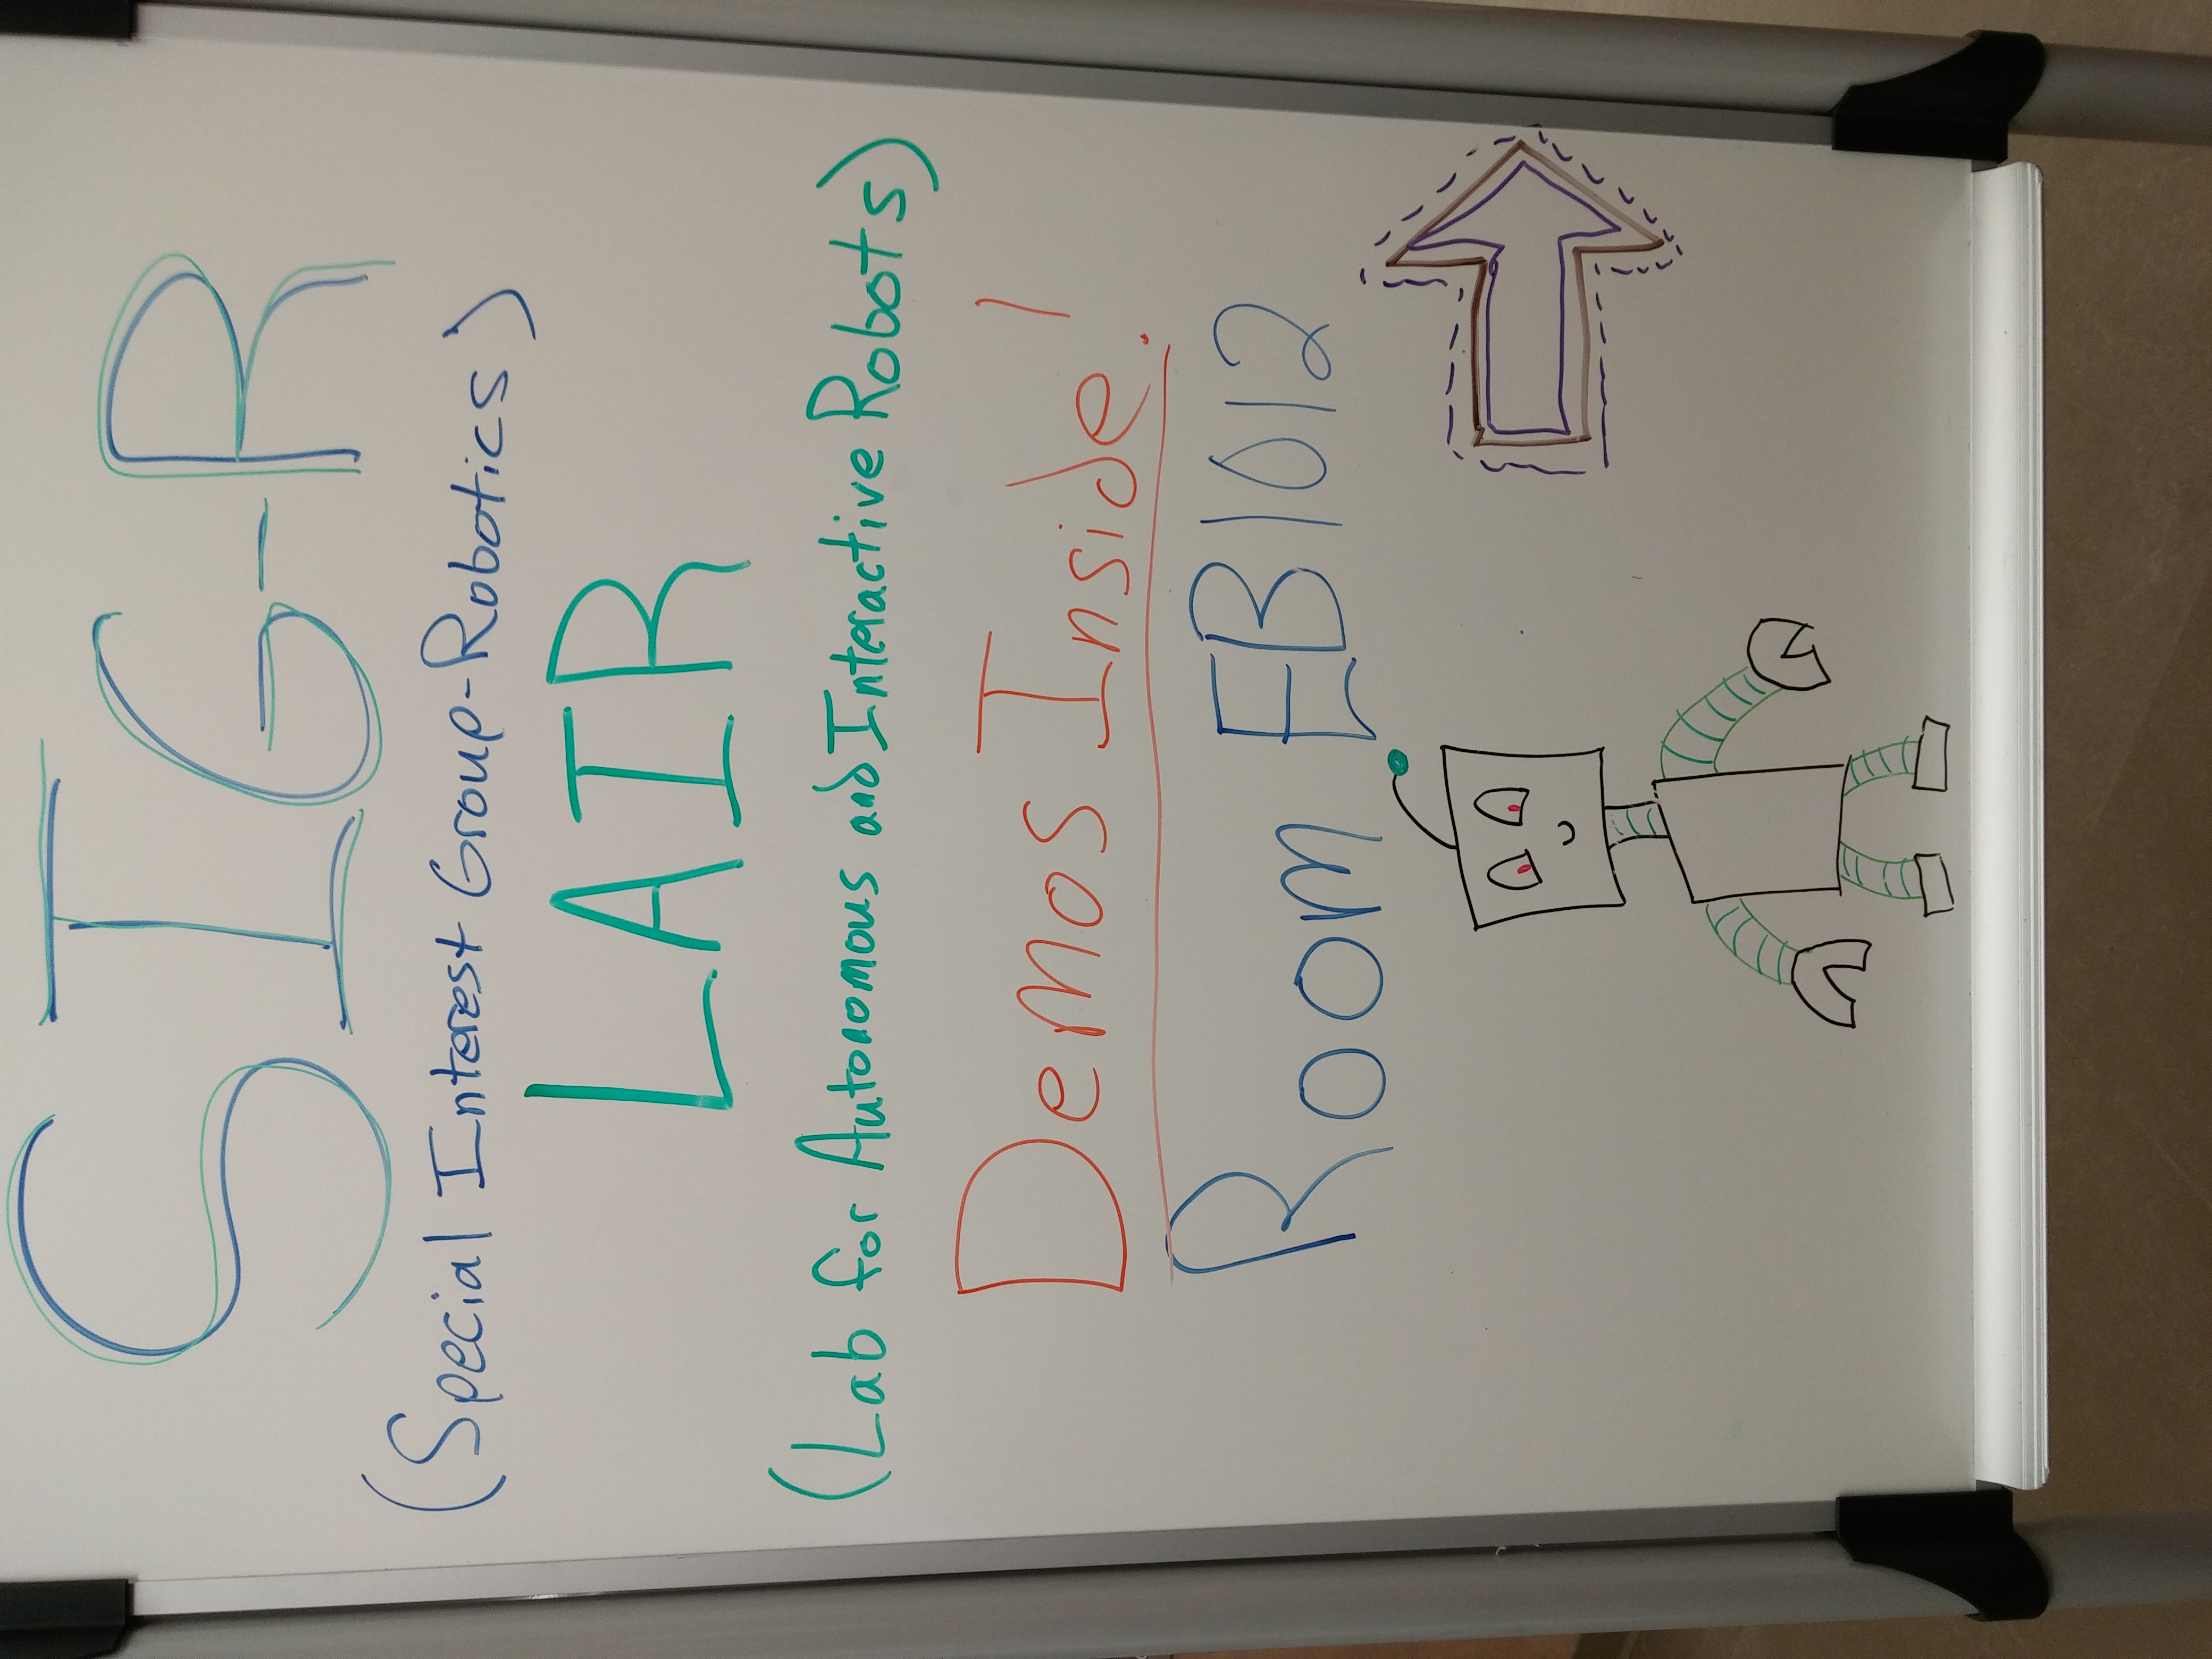 SIG-R
(Special Interest Group-Robotics)
LAIR
(Lab for Autonomous and Interactive Robots)
Demos Inside!
Room EB1012